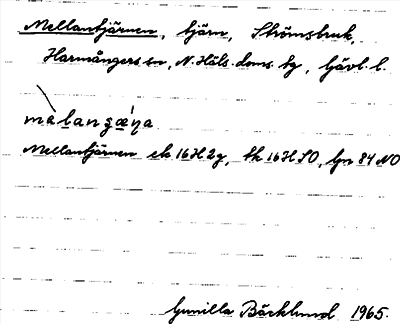 Mellantjärnen, tjärn, Strömsbruk,
Harmångers sn, N. Häls. doms. tg, Gävl. l.
mèlanʒæ´ṇa
Mellantjärnen ek 16H2g, tk 16H SO, Gn 84 NO
Gunilla Bäcklund 1965.